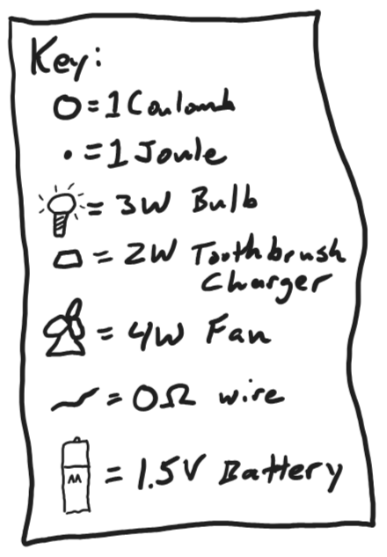 Key:
O = 1 Coulomb
• = 1 Joule
= 3W Bulb
= 2W Toothbrush
Charger
= 4W Fan
= 0Ω wire
AA = 1.5V Battery